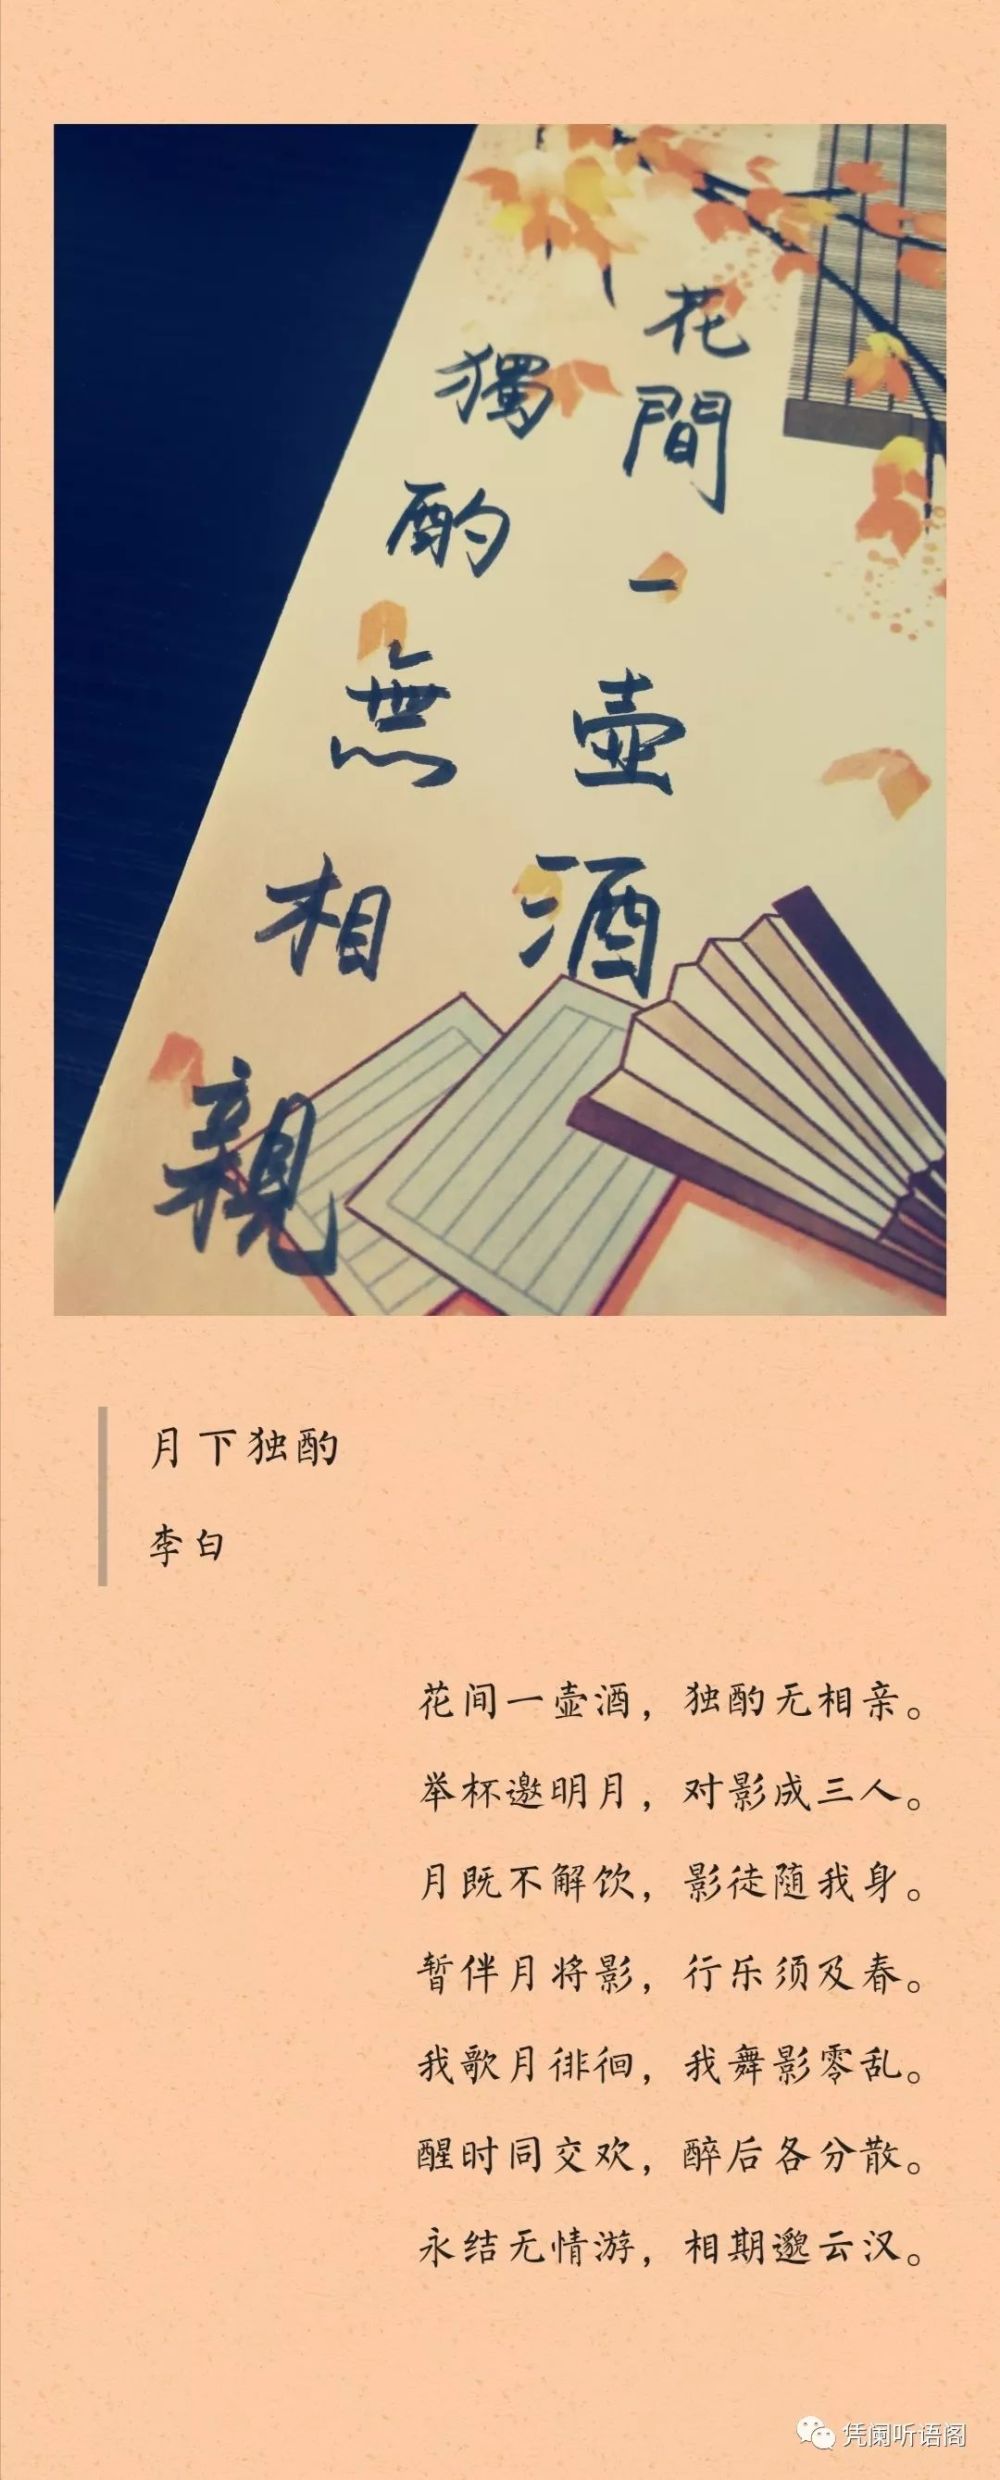 花間一壺酒
獨酌無相親
月下独酌
李白
花间一壶酒，独酌无相亲。
举杯邀明月，对影成三人。
月既不解饮，影徒随我身。
暂伴月将影，行乐须及春。
我歌月徘徊，我舞影零乱。
醒时同交欢，醉后各分散。
永结无情游，相期邈云汉。
凭阑听语阁